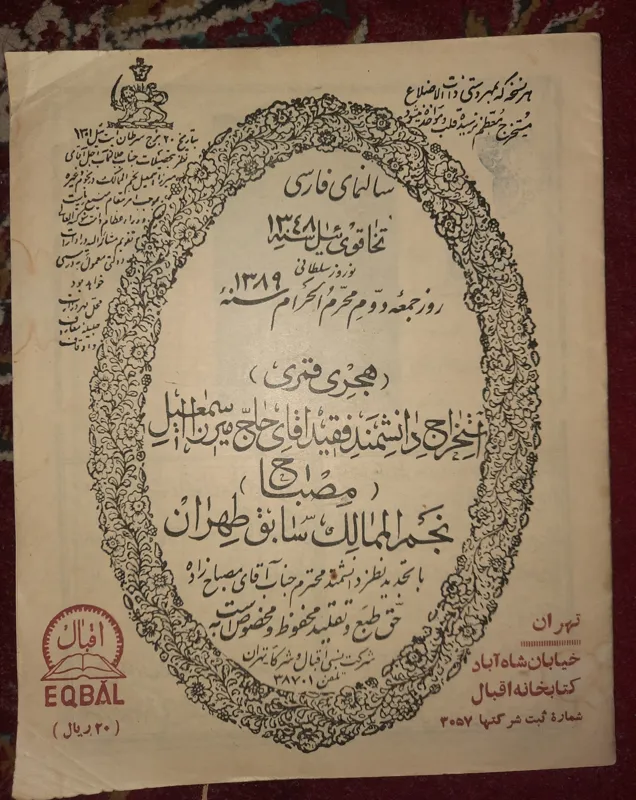 هر نسخه که بمهر دستی ذات الاضلاع
مستخرج منطقه نرسیده قلب و مؤاخذه میشود
بتاریخ ۲۰ برج سرطان ایت ئیل ۱۳۰۱
میرزا اسمعیل نجم الممالک
خواهد بود
سالنمای فارسی
تخاقوی ئیل سنه ۱۳۴۸
نوروز سلطانی
روز جمعه دوم محرم الحرام سنه ۱۳۸۹
(هجری قمری)
استخراج دانشمند فقید آقای حاج میرزا اسمعیل
(مصباح)
نجم الممالک سابق طهران
با تجدید نظر دانشمند محترم جناب آقای مصباح زاده
حق طبع و تقلید محفوظ و مخصوص است به
شرکت نسبی اقبال و شرکاء تهران
تلفن ۳۸۷۰۱
اقبال
EQBÂL
(۲۰ ریال)
تهران
خیابان شاه آباد
کتابخانه اقبال
شماره ثبت شرکتها ۳۰۵۷